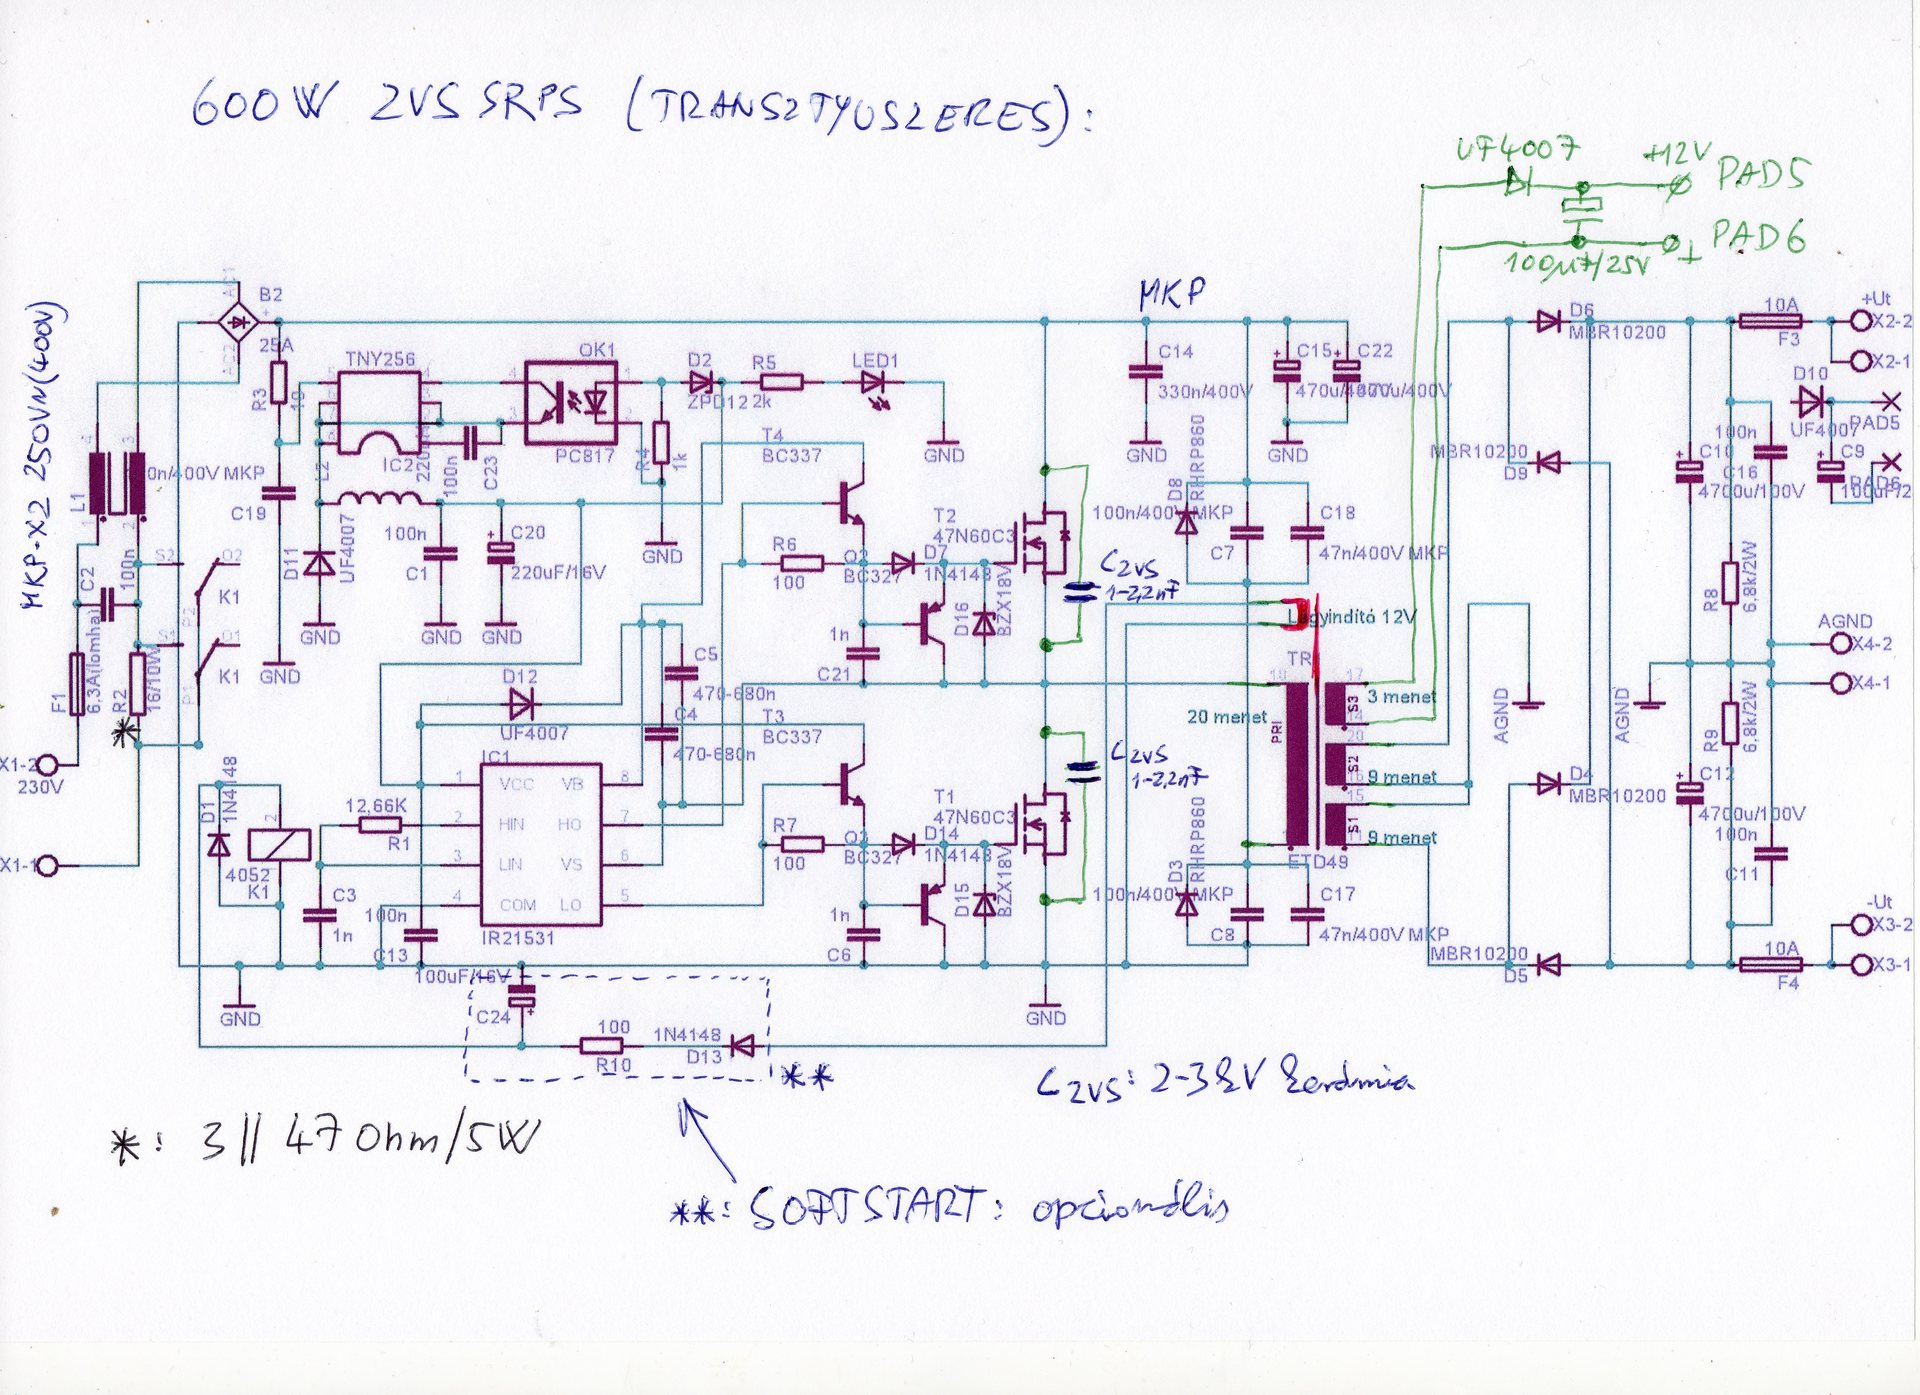 600W ZVS SRPS (TRANSZTYUSZERES):
UF4007
+12V PAD5
PAD6
100µF/25V
MKP-X2 250VN(400V)
MKP
AC1
B2
25A
AC2
R3
10
TNY256
IC2
OK1
PC817
D2
ZPD12
R5
2k
LED1
GND
R4
1k
C23
100n
L1
C19
L2
D11
UF4007
100n
C1
C20
220uF/16V
GND
GND
GND
GND
GND
T4
BC337
R6
100
Q2
BC327
D7
1N4148
T2
47N60C3
D16
BZX18V
1n
C21
CZVS
1-2,2nF
C14
330n/400V
GND
C15
470u/400V
C22
GND
D8
RHRP860
100n/400V MKP
C7
C18
47n/400V MKP
Lágyindító 12V
TR
20 menet
PRI
3 menet
S3
S2
9 menet
S1
9 menet
ETD49
C2
100n
F1
6,3A(lomha)
R2
16/10W
S2
O2
K1
P2
S1
O1
K1
P1
X1-2
230V
X1-1
D1
1N4148
4052
K1
D12
UF4007
C5
470-680n
C4
470-680n
T3
BC337
IC1
VCC
VB
HIN
HO
LIN
VS
COM
LO
IR21531
12,66K
R1
C3
1n
100n
C13
R7
100
D14
1N4148
T1
47N60C3
D15
BZX18V
1n
C6
CZVS
1-2,2nF
D3
RHRP860
100n/400V MKP
C8
C17
47n/400V MKP
D6
MBR10200
MBR10200
D9
D4
MBR10200
MBR10200
D5
AGND
AGND
10A
F3
+Ut
X2-2
X2-1
D10
UF4007
PAD5
C9
PAD6
C10
4700u/100V
100n
C16
R8
6,8k/2W
AGND
X4-2
X4-1
R9
6,8k/2W
C12
4700u/100V
100n
C11
-Ut
X3-2
X3-1
10A
F4
GND
GND
100uF/16V
C24
100
R10
1N4148
D13
**
*
CZVS: 2-3kV kerámia
*: 3 || 47 Ohm/5W
**: SOFTSTART: opcionális